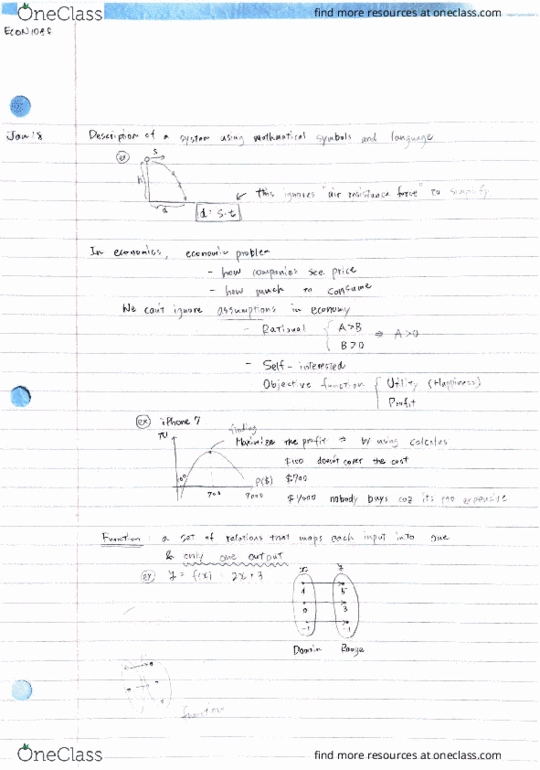 OneClass
find more resources at oneclass.com
Jan 18
Description of a system using mathmatical symbols and language
ex
s
h
d
this ignores "air resistance force" to simplify
d = s·t
In economics, economic problem
- how companies see price
- how much to consume
We can't ignore assumptions in economy
- Rational { A>B ⇒ A>0
B>0
- Self-interested
Objective function { Utility (Happiness)
Profit
ex iPhone 7
finding
Maximize the profit ⇒ by using calculus
$100 doesn't cover the cost
P($) $700
100 700
$7000 nobody buys coz its too expensive
Function : a set of relations that maps each input into one
& only one output
ex y = f(x) = 2x+3
x y
1 5
0 3
-1 -1
Domain Range
function
OneClass
find more resources at oneclass.com